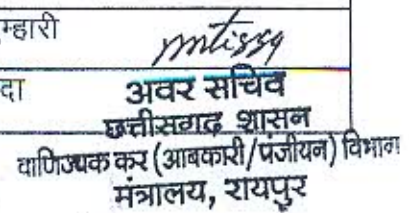 म्हारी
दा
अवर सचिव
छत्तीसगढ़ शासन
वाणिज्यक कर (आबकारी/पंजीयन) विभाग
मंत्रालय, रायपुर